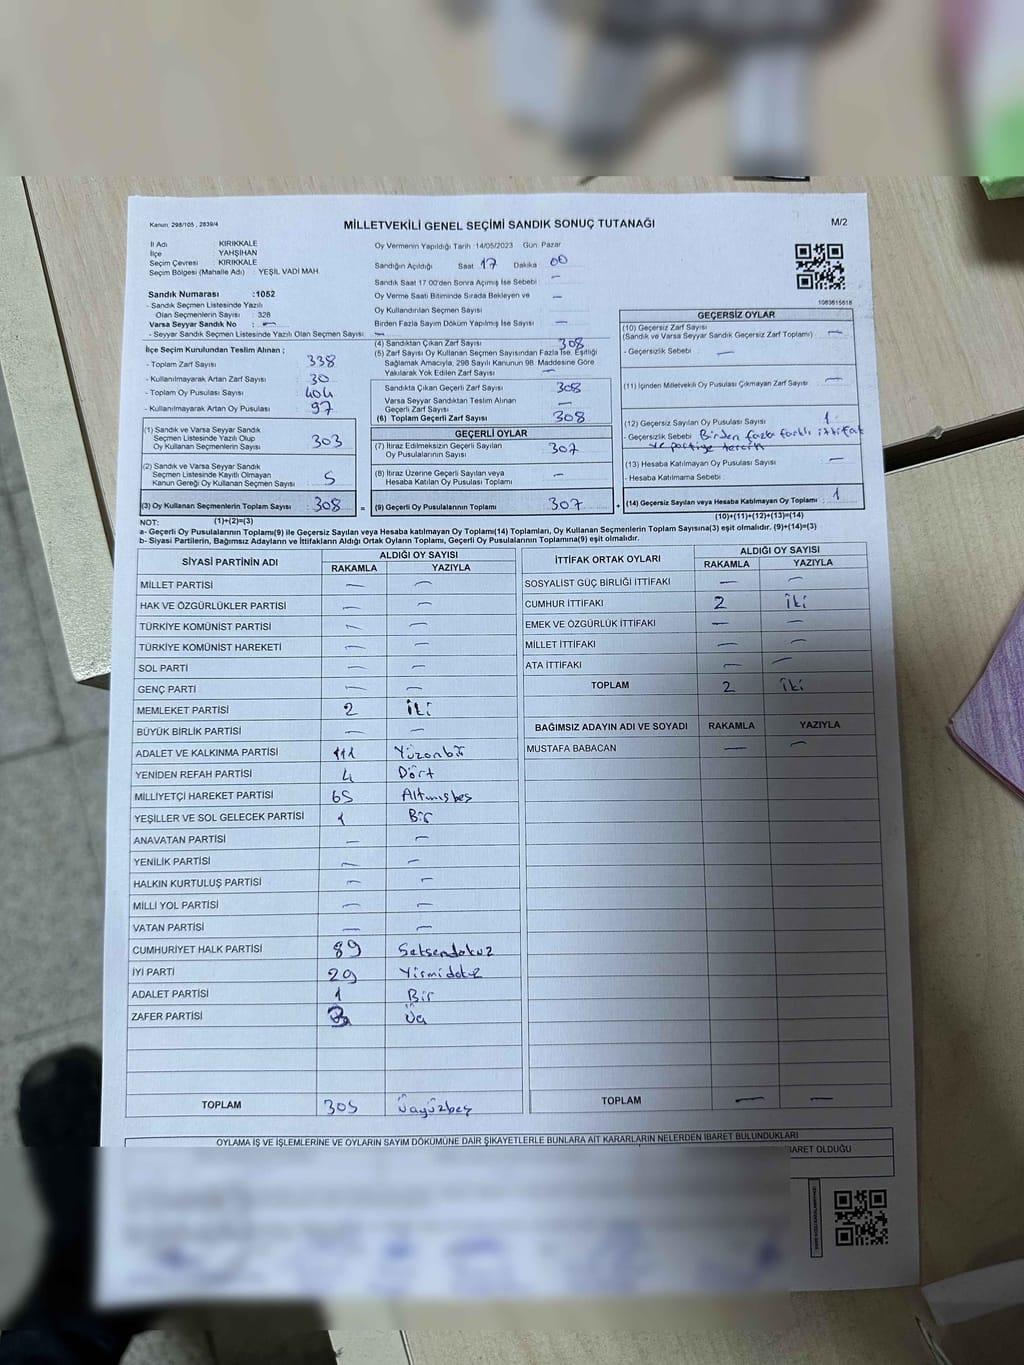 Kanun: 298/105 , 2839/4
MİLLETVEKİLİ GENEL SEÇİMİ SANDIK SONUÇ TUTANAĞI
M/2
İl Adı KIRIKKALE
İlçe YAHŞİHAN
Seçim Çevresi : KIRIKKALE
Seçim Bölgesi (Mahalle Adı) : YEŞİL VADİ MAH.
Oy Vermenin Yapıldığı Tarih :14/05/2023 Gün: Pazar
Sandığın Açıldığı Saat 17 Dakika 00
Sandık Saat 17.00'den Sonra Açımış İse Sebebi : —
Oy Verme Saati Bitiminde Sırada Bekleyen ve
Oy Kullandırılan Seçmen Sayısı —
Birden Fazla Sayım Döküm Yapılmış İse Sayısı : —
1083615618
Sandık Numarası :1052
- Sandık Seçmen Listesinde Yazılı
Olan Seçmenlerin Sayısı : 328
Varsa Seyyar Sandık No : —
- Seyyar Sandık Seçmen Listesinde Yazılı Olan Seçmen Sayısı: —
İlçe Seçim Kurulundan Teslim Alınan ;
- Toplam Zarf Sayısı : 338
- Kullanılmayarak Artan Zarf Sayısı : 30
- Toplam Oy Pusulası Sayısı : 404
- Kullanılmayarak Artan Oy Pusulası : 97
(1) Sandık ve Varsa Seyyar Sandık
Seçmen Listesinde Yazılı Olup
Oy Kullanan Seçmenlerin Sayısı : 303
(2) Sandık ve Varsa Seyyar Sandık
Seçmen Listesinde Kayıtlı Olmayan
Kanun Gereği Oy Kullanan Seçmen Sayısı : 5
(3) Oy Kullanan Seçmenlerin Toplam Sayısı : 308 =
(4) Sandıktan Çıkan Zarf Sayısı : 308
(5) Zarf Sayısı Oy Kullanan Seçmen Sayısından Fazla İse, Eşitliği
Sağlamak Amacıyla, 298 Sayılı Kanunun 98. Maddesine Göre
Yakılarak Yok Edilen Zarf Sayısı : —
Sandıkta Çıkan Geçerli Zarf Sayısı : 308
Varsa Seyyar Sandıktan Teslim Alınan
Geçerli Zarf Sayısı : —
(6) Toplam Geçerli Zarf Sayısı : 308
GEÇERLİ OYLAR
(7) İtiraz Edilmeksizin Geçerli Sayılan
Oy Pusulalarının Sayısı : 307
(8) İtiraz Üzerine Geçerli Sayılan veya
Hesaba Katılan Oy Pusulası Toplamı : —
(9) Geçerli Oy Pusulalarının Toplamı : 307 +
GEÇERSİZ OYLAR
(10) Geçersiz Zarf Sayısı
(Sandık ve Varsa Seyyar Sandık Geçersiz Zarf Toplamı) : —
- Geçersizlik Sebebi : —
(11) İçinden Milletvekili Oy Pusulası Çıkmayan Zarf Sayısı : —
(12) Geçersiz Sayılan Oy Pusulası Sayısı : 1
- Geçersizlik Sebebi : Birden fazla farklı ittifak
ve partiye tercih
(13) Hesaba Katılmayan Oy Pusulası Sayısı : —
- Hesaba Katılmama Sebebi :
(14) Geçersiz Sayılan veya Hesaba Katılmayan Oy Toplamı : 1
NOT: (1)+(2)=(3)
(10)+(11)+(12)+(13)=(14)
a- Geçerli Oy Pusulalarının Toplamı(9) ile Geçersiz Sayılan veya Hesaba katılmayan Oy Toplamı(14) Toplamları, Oy Kullanan Seçmenlerin Toplam Sayısına(3) eşit olmalıdır. (9)+(14)=(3)
b- Siyasi Partilerin, Bağımsız Adayların ve İttifakların Aldığı Ortak Oyların Toplamı, Geçerli Oy Pusulalarının Toplamına(9) eşit olmalıdır.
SİYASİ PARTİNİN ADI ALDIĞI OY SAYISI
RAKAMLA YAZIYLA
MİLLET PARTİSİ — —
HAK VE ÖZGÜRLÜKLER PARTİSİ — —
TÜRKİYE KOMÜNİST PARTİSİ — —
TÜRKİYE KOMÜNİST HAREKETİ — —
SOL PARTİ — —
GENÇ PARTİ — —
MEMLEKET PARTİSİ 2 İki
BÜYÜK BİRLİK PARTİSİ — —
ADALET VE KALKINMA PARTİSİ 111 Yüzonbir
YENİDEN REFAH PARTİSİ 4 Dört
MİLLİYETÇİ HAREKET PARTİSİ 65 Altmışbeş
YEŞİLLER VE SOL GELECEK PARTİSİ 1 Bir
ANAVATAN PARTİSİ — —
YENİLİK PARTİSİ — —
HALKIN KURTULUŞ PARTİSİ — —
MİLLİ YOL PARTİSİ — —
VATAN PARTİSİ — —
CUMHURİYET HALK PARTİSİ 89 Seksendokuz
İYİ PARTİ 29 Yirmidokuz
ADALET PARTİSİ 1 Bir
ZAFER PARTİSİ 3 Üç
TOPLAM 305 Üçyüzbeş
İTTİFAK ORTAK OYLARI ALDIĞI OY SAYISI
RAKAMLA YAZIYLA
SOSYALİST GÜÇ BİRLİĞİ İTTİFAKI — —
CUMHUR İTTİFAKI 2 İki
EMEK VE ÖZGÜRLÜK İTTİFAKI — —
MİLLET İTTİFAKI — —
ATA İTTİFAKI — —
TOPLAM 2 İki
BAĞIMSIZ ADAYIN ADI VE SOYADI RAKAMLA YAZIYLA
MUSTAFA BABACAN — —
TOPLAM — —
OYLAMA İŞ VE İŞLEMLERİNE VE OYLARIN SAYIM DÖKÜMÜNE DAİR ŞİKAYETLERLE BUNLARA AİT KARARLARIN NELERDEN İBARET BULUNDUKLARI
İBARET OLDUĞU